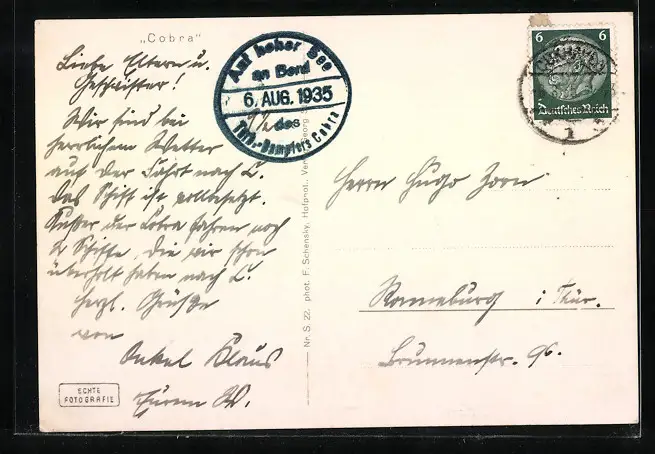 „Cobra“
Liebe Eltern u.
Geschwister!
Wir sind bei
herrlichem Wetter
auf der Fahrt nach
Das Schiff ist vollbesetzt.
Außer der Cobra fahren noch
2 Schiffe, die wir schon
überholt haben nach
Herzl. Grüße
von
Onkel Klaus
ECHTE
FOTOGRAFIE
Auf hoher See
an Bord
6. AUG. 1935
des
Turb.-Dampfers Cobra
Nr. S. 22. phot. F. Schensky, Hofphot., Verl. Georg
6 6
Deutsches Reich
Herrn Hugo Zorn
Ronneburg i. Thür.
Brunnenstr. 96.